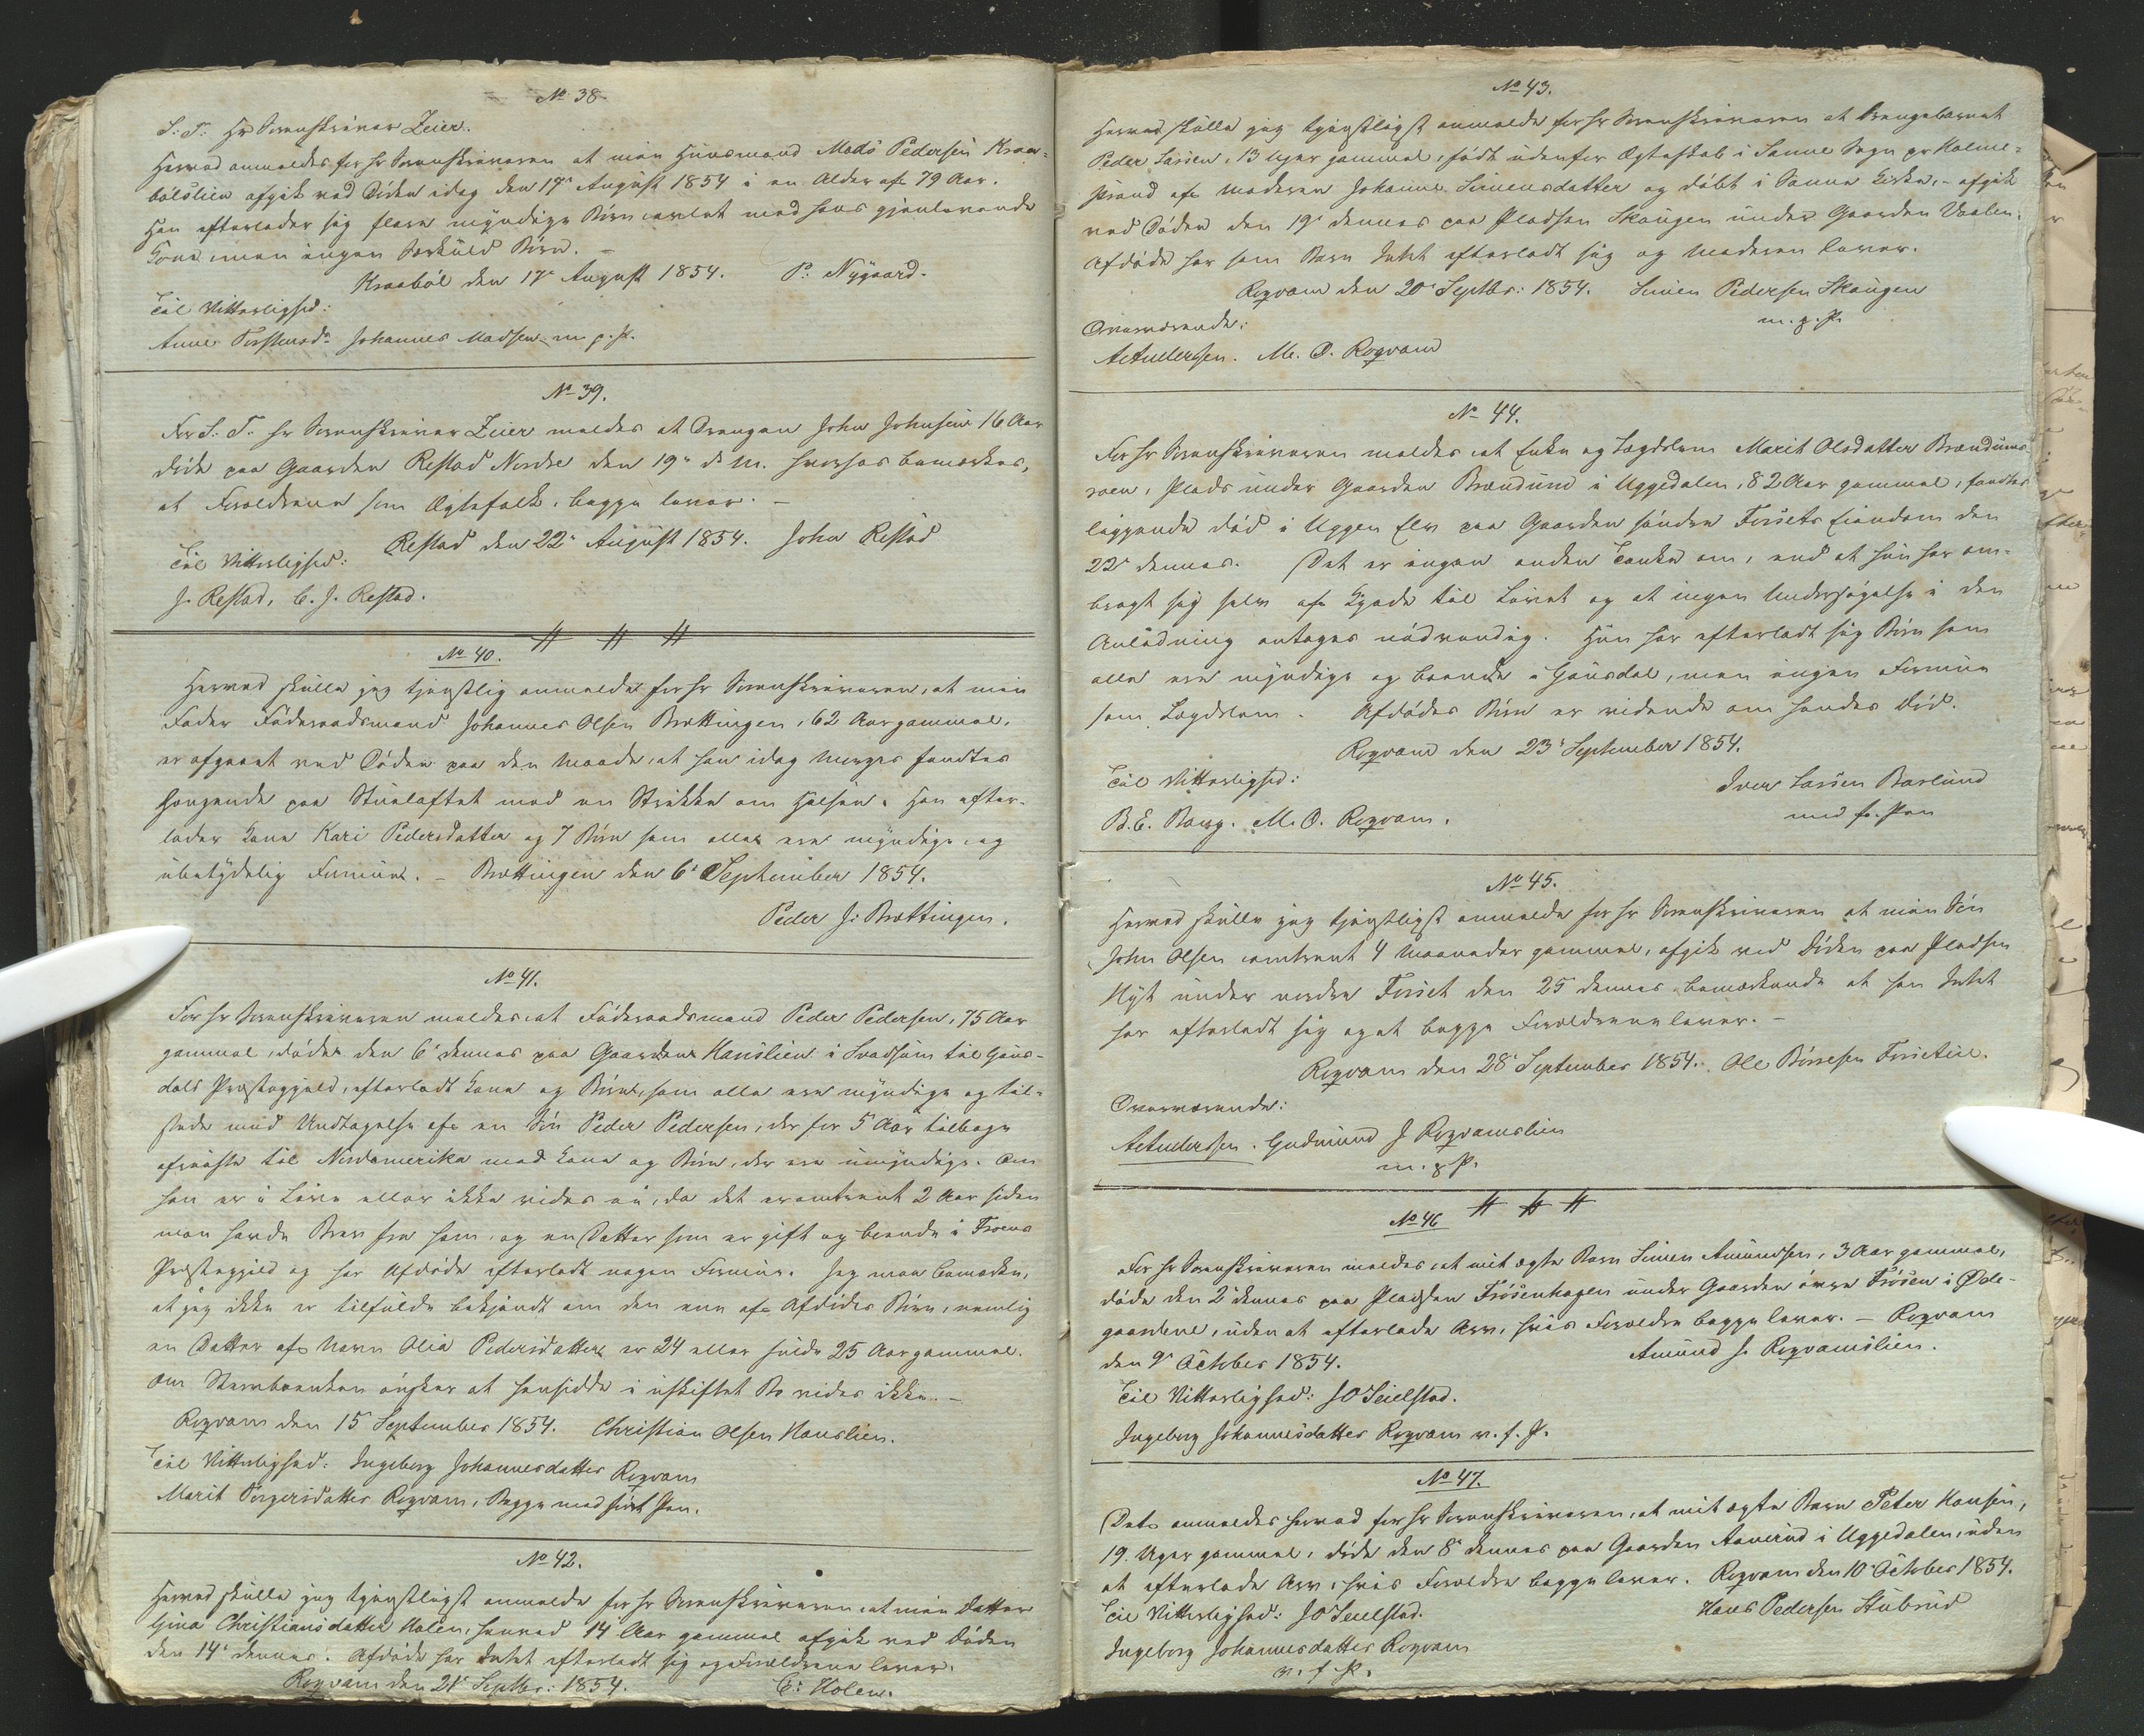 No 38
S: T: Hr Sorenskriver Zeier.
Herved anmeldes for Hr Sorenskriveren at min Huusmand Mads Pedersen Kraa-
bølslien afgik ved Døden idag den 17de August 1854 i en Alder af 79 Aar.
Han efterlader sig flere myndige Børn avlet med hans gjenlevende
Kone, men ingen Særkuld Børn. –
Kraabøl den 17de August 1854. P: Nygaard.
Til Vitterlighed:
Anne Torstensdr Johannes Madsen m. p. P.
No 39.
For S: T: Hr Sorenskriver Zeier meldes at Drengen John Johnsen 16 Aar
døde paa Gaarden Restad Nordre den 19de d. M. hvorhos bemærkes,
at Forældrene som Ægtefolk, begge lever. –
Restad den 22de August 1854. John Restad
Til Vitterlighed:
J. Restad, C. J. Restad.
No 40.
Herved skulle jeg tjenstlig anmelde for Hr Sorenskriveren, at min
Fader Føderaadsmand Johannes Olsen Brættingen, 62 Aar gammel,
er afgaaet ved Døden paa den Maade, at han idag Morges fandtes
hængende paa Stueloftet med en Strikke om Halsen. Han efter-
lader Kone Kari Pedersdatter og 7 Børn som alle ere myndige, og
ubetydelig Formue. – Brættingen den 6te September 1854.
Peder J: Brættingen.
No 41.
For Hr Sorenskriveren meldes, at Føderaadsmand Peder Pedersen, 75 Aar
gammel, døde den 6te dennes paa Gaarden Hauslien i Svadsum til Gaus-
dals Præstegjeld, efterladt Kone og Børn, som alle ere myndige og til-
stede med Undtagelse af en Søn Peder Pedersen, der for 5 Aar tilbage
afreiste til Nordamerika med Kone og Børn, der ere umyndige. Om
han er i Live eller ikke vides ei, da det er omtrent 2 Aar siden
man havde Brev fra ham, og en Datter som er gift og boende i Froens
Præstegjeld og har Afdøde efterladt nogen Formue. Jeg maa bemærke,
at jeg ikke er tilfulde bekjendt om den ene af Afdødes Børn, nemlig
en Datter af Navn Olia Pedersdatter er 24 eller fulde 25 Aar gammel.
Om Stervboenken ønsker at hensidde i uskiftet Bo vides ikke. –
Rogvam den 15 September 1854. Christian Olsen Hauslien.
Til Vitterlighed: Ingeborg Johannesdatter Rogvam
Marit Torgersdatter Rogvam, Begge med ført Pen.
No 42.
Herved skulle jeg tjenstligst anmelde for Hr Sorenskriveren, at min Datter
Gina Christiansdatter Holen, henved 14 Aar gammel afgik ved Døden
den 14de dennes. Afdøde har Intet efterladt sig og Forældrene lever.
Rogvam den 21de Septbr: 1854. C: Holen.
No 43.
Herved skulle jeg tjenstligst anmelde for Hr Sorenskriveren at Drengebarnet
Peder Larsen, 13 Uger gammel, født udenfor Ægteskab i Sanne Sogn pr Holme-
strand af Moderen Johanne Simensdatter og døbt i Sanne Kirke, – afgik
ved Døden den 19de dennes paa Pladsen Skougen under Gaarden Vaalen.
Afdøde har som Barn Intet efterladt sig og Moderen lever.
Rogvam den 20de Septbr: 1854. Simen Pedersen Skougen
m. p. P.
Overværende:
A Andersen. M. O. Rogvam
No 44.
For Hr Sorenskriveren meldes at Enke og Lægdslem Marit Olsdatter Brændums-
roen, Plads under Gaarden Brændum i Uggedalen, 82 Aar gammel, fandtes
liggende død i Uggen Elv paa Gaarden søndre Forsets Eiendom den
22de dennes. Det er ingen anden Tanke om, end at hun har om-
bragt sig selv af Kjede til Livet og at ingen Undersøgelse i den
Anledning antages nødvendig. Hun har efterladt sig Børn som
alle ere myndige og boende i Gausdal, men ingen Formue
som Lægdslem. Afdødes Børn er vidende om hendes Død.
Rogvam den 23de September 1854.
Til Vitterlighed:
Iver Larsen Barlund
med f. Pen
B. E. Berg. M. O. Rogvam.
No 45.
Herved skulle jeg tjenstligst anmelde for Hr Sorenskriveren at min Søn
John Olsen omtrent 4 Maaneder gammel, afgik ved Døden paa Pladsen
Nyt under nordre Forset den 25 dennes bemærkende at han Intet
har efterladt sig og at begge Forældrene lever. –
Rogvam den 28de September 1854. Ole Børresen Forseteie.
Overværende:
A Andersen. Gudmund J Rogvamslien
m. p P.
No 46
For Hr Sorenskriveren meldes, at mit ægte Barn Simen Amundsen, 3 Aar gammel,
døde den 2de dennes paa Pladsen Frøsenhagen under Gaarden øvre Frøsen i Øde-
gaardene, uden at efterlade Arv, hvis Forældre begge lever. – Rogvam
den 9de October 1854. Amund J. Rogvamslien.
Til Vitterlighed: J O Seielstad.
Ingeborg Johannesdatter Rogvam m. f. P.
No 47.
Dets anmeldes herved for Hr Sorenskriveren, at mit ægte Barn Peter Hansen,
19. Uger gammel, døde den 8de dennes paa Gaarden Aamrud i Uggedalen, uden
at efterlade Arv, hvis Forældre begge lever. Rogvam den 10de October 1854.
Til Vitterlighed: J O Seielstad. Hans Pedersen Stubrud
Ingeborg Johannesdatter Rogvam
m. f. P.